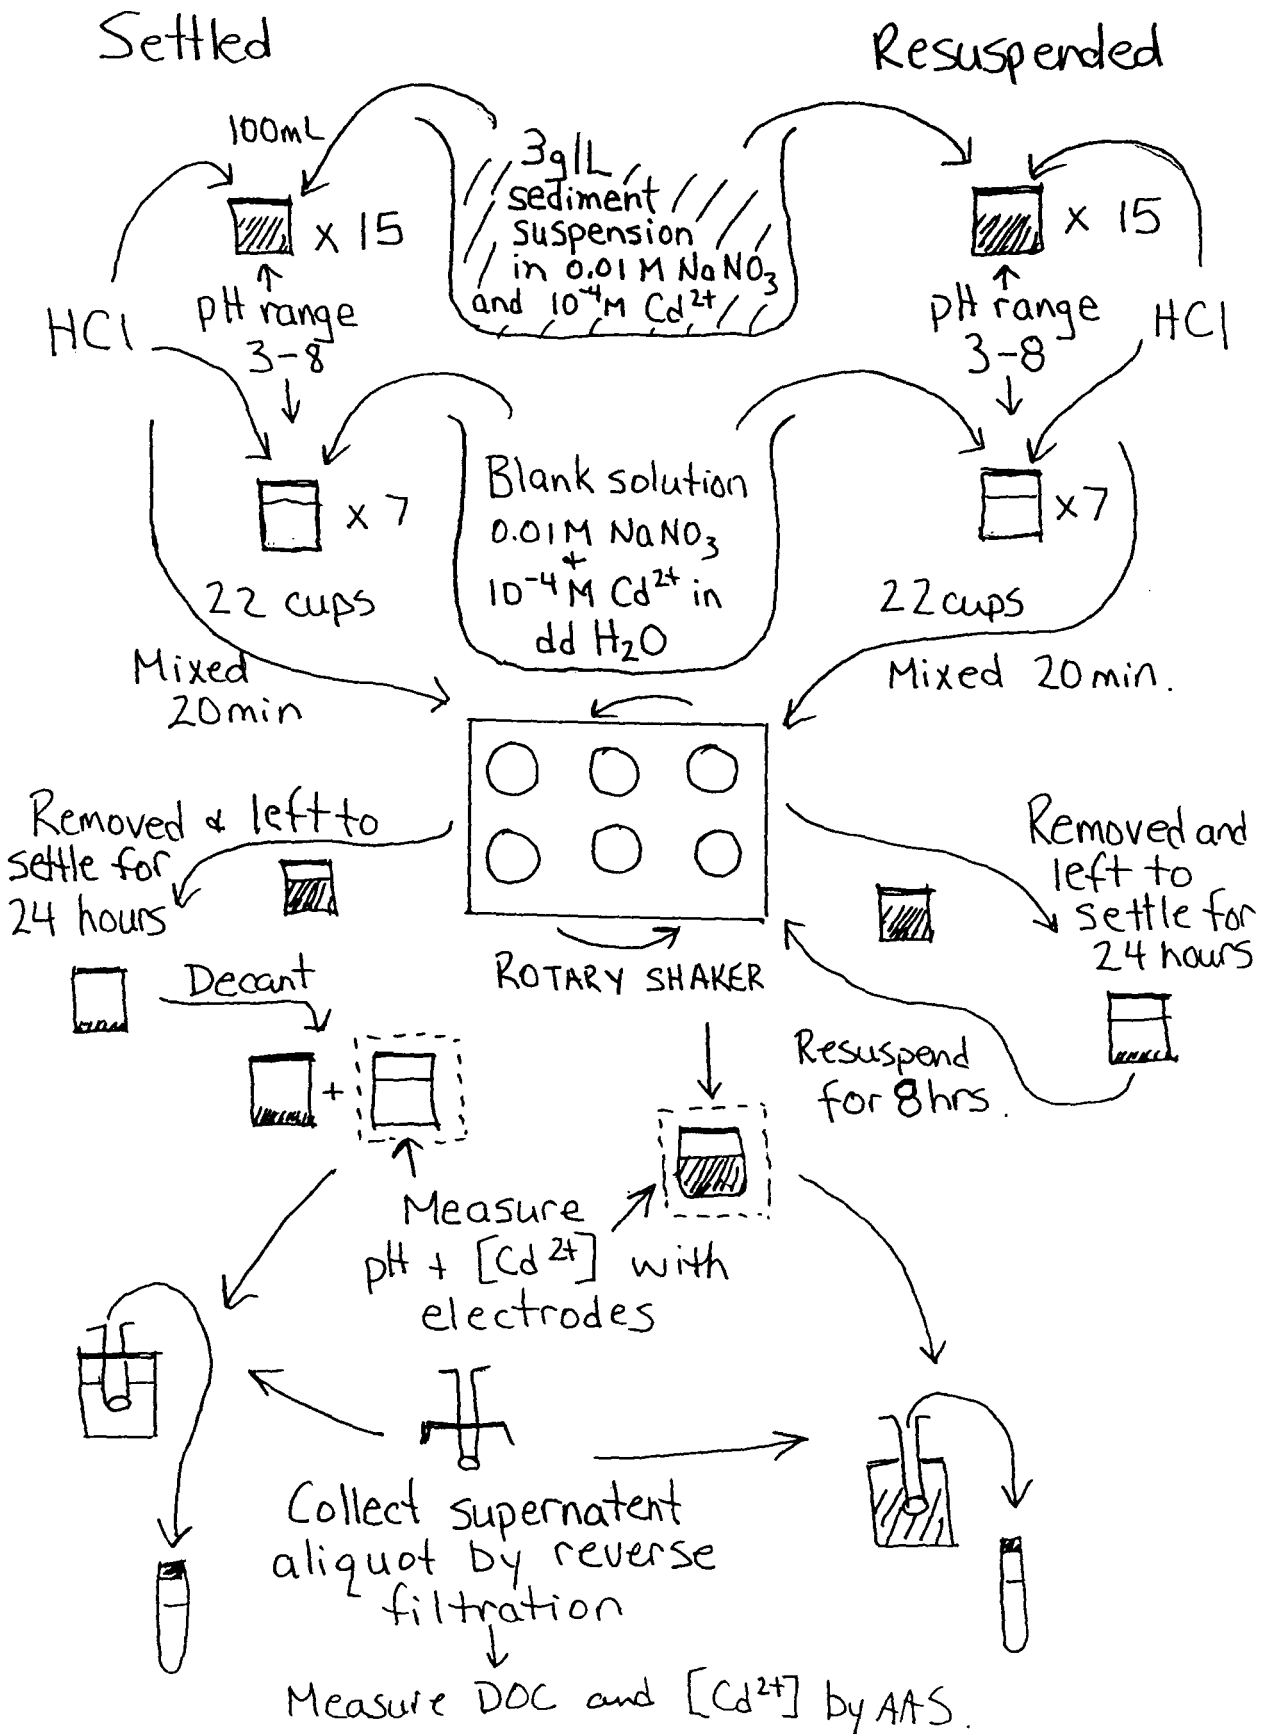 Settled
Resuspended
100mL
3g/L
sediment
suspension
in 0.01 M NaNO₃
and 10⁻⁴M Cd²⁺
x 15
x 15
pH range
3-8
HCl
pH range
3-8
HCl
Blank solution
0.01M NaNO₃
+
10⁻⁴M Cd²⁺ in
dd H₂O
x 7
x7
22 cups
22 cups
Mixed
20min
Mixed 20min.
Removed & left to
settle for
24 hours
Removed and
left to
settle for
24 hours
ROTARY SHAKER
Decant
+
Resuspend
for 8hrs.
Measure
pH + [Cd²⁺] with
electrodes
Collect supernatent
aliquot by reverse
filtration
Measure DOC and [Cd²⁺] by AAS.